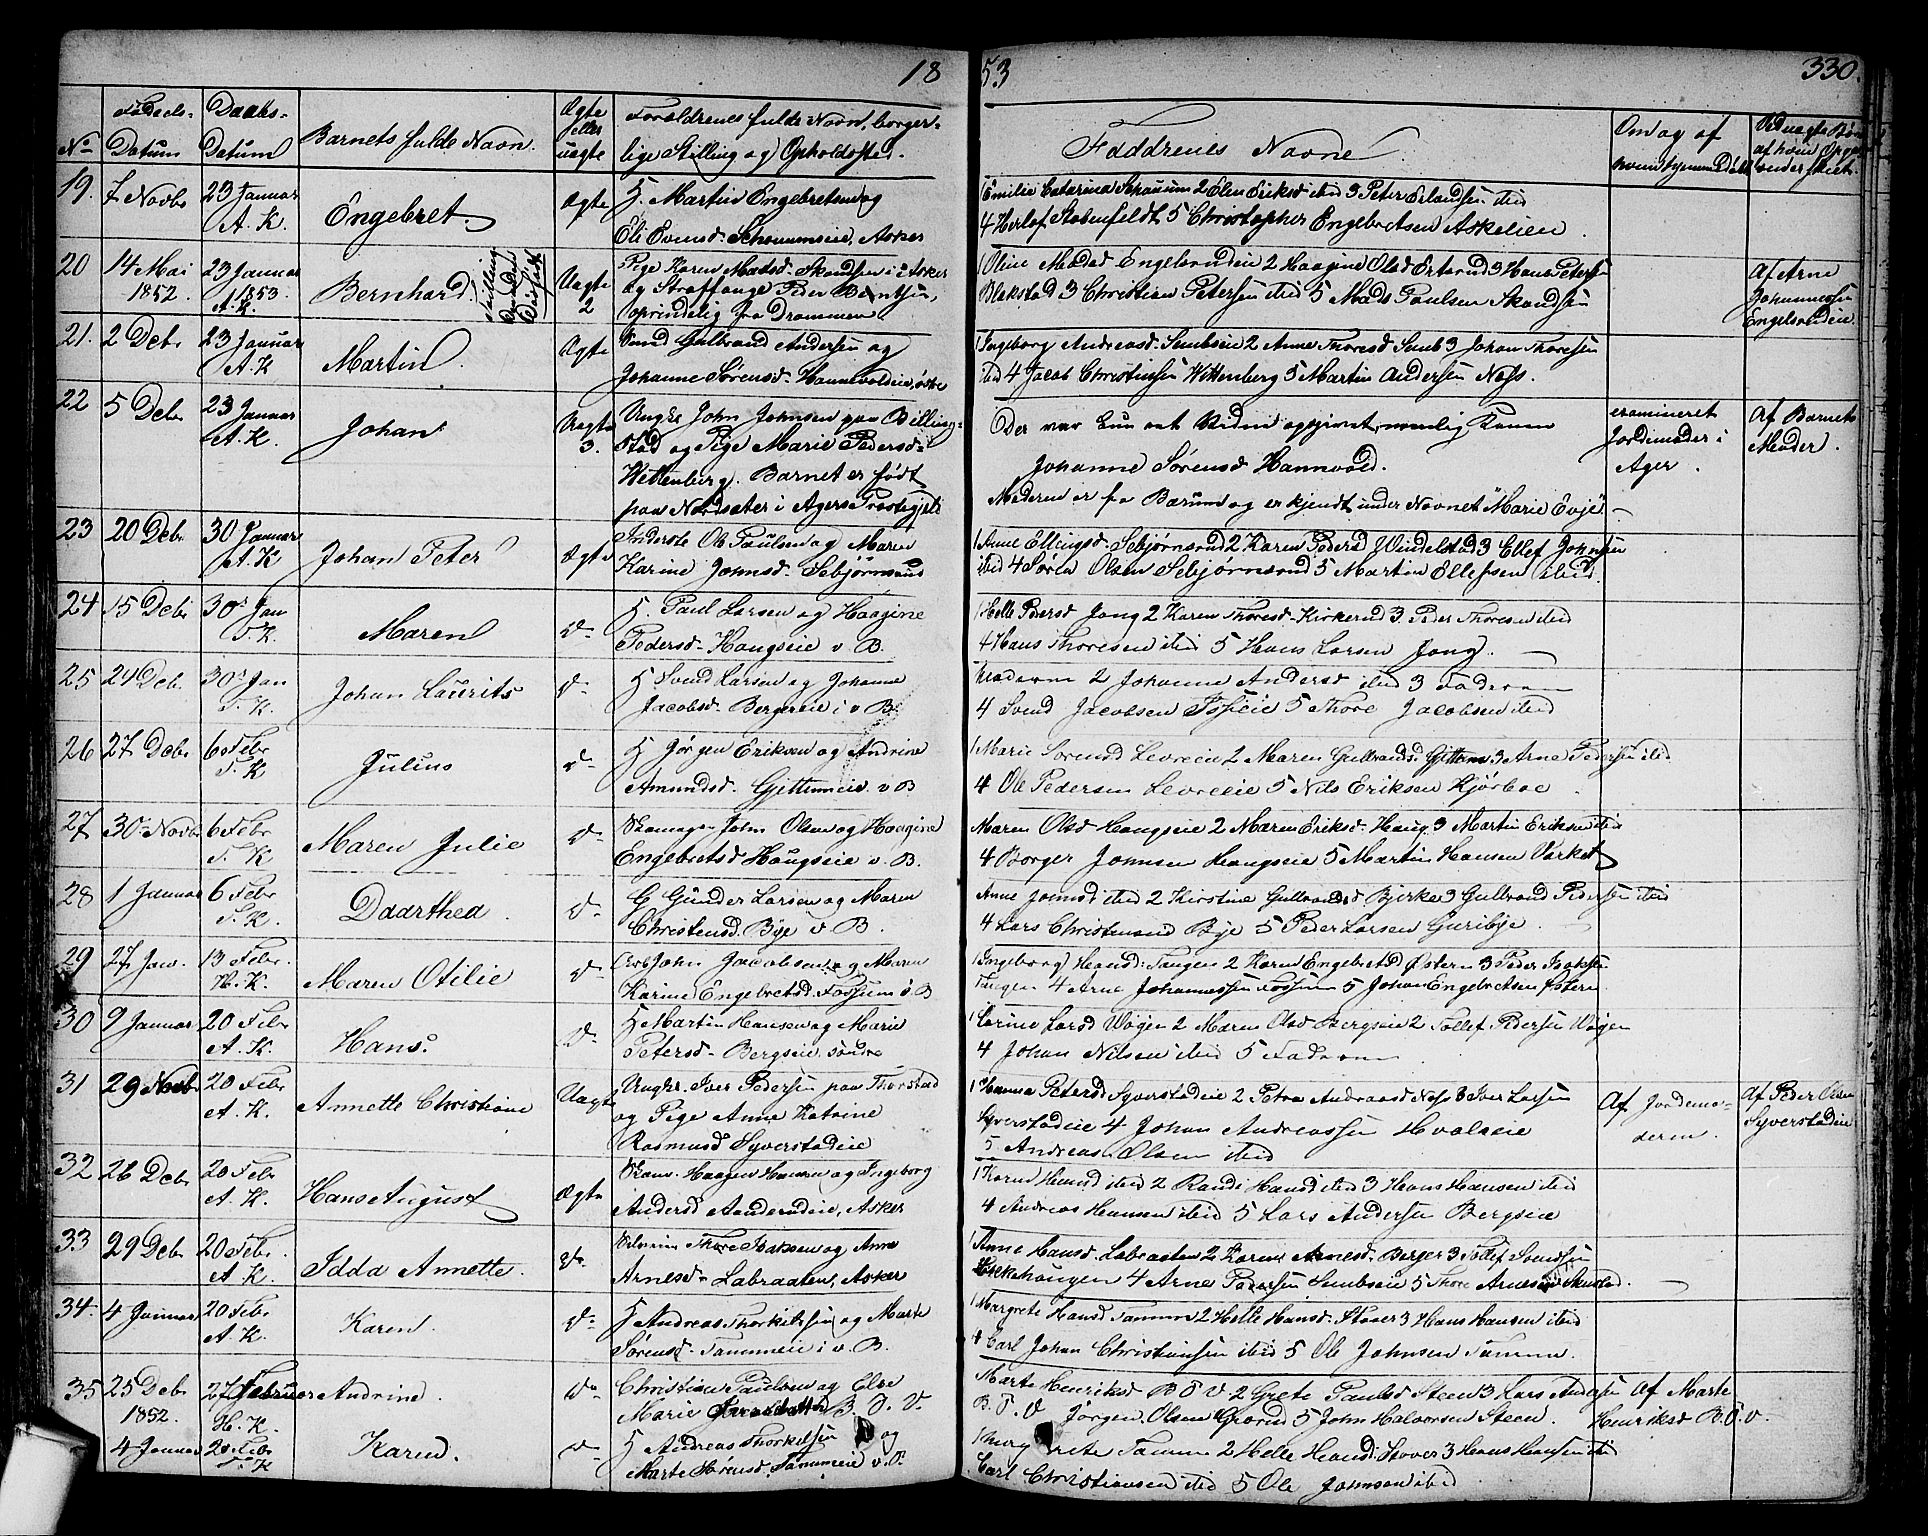 18
53
330
No
Fødsels-
Datum
Daabs-
Datum
Barnets fulde Navn.
Ægte
eller
uægte
Forældrenes fulde Navn, borger-
lige Stilling og Opholdssted.
Faddrenes Navne
Om og af
Ved uægte Børn
19. 7 Novbr 23 Januar Engebret. Ægte H. Martin Engebretsen og
A. K. Eli Evensd. Schaumseie, Asker
1 Emilie Catarina Schauum 2 Elen Eriksd ibid 3 Peter Erlandsen ibid
4 Herlof Stabenfeldt 5 Christopher Engebretsen Askelien.
20 14 Mai 23 Januar Bernhard. Uægte Pige Karen Madsd. Skandsen i Asker
1852. 1853. 2 og Straffange Peder Berntsen,
A. K. oprindelig fra Drammen
1 Oline Madsd Engelsrudeie 2 Haagine Olsd Ertsrud 3 Hans Petersen
Blakstad 3 Christian Petersen ibid 5 Mads Paulsen Skandsen
Af Arne
Johannessen
Engelsrudeie.
21. 2 Debr 23 Januar Martin. Ægte Gulbrand Andersen og
A. K Johanne Sørensd. Hannevoldeie,
1 Ingeborg Andreasd. Sembseie 2 Anne Thoresd Semb 3 Johan Thoresen
ibid 4 Jacob Christensen Wittenberg 5 Martin Andersen Næss.
22 5 Debr 23 Januar Johan Uægte Ungke John Johnsen paa Billing-
A. K. 3. stad og Pige Marie Pedersd.
Wettenberg. Barnet er født
paa Nordsæter i Agers Præstegjeld
Der var kun eet Vidne opgivet, nemlig Karen
Johanne Sørensd Hannvold.
Moderen er fra Bærum og er kjendt under Navnet "Marie Evje"
examineret
Jordemoder i
Ager.
Af Barnets
Moder.
23 20 Debr 30 Januar Johan Peter Ægte Inderste Ole Paulsen og Maren
A. K Karine Johnsd. Sebjørnsrud
1 Anne Ellingsd. Sebjørnsrud 2 Karen Pedersd Windelstad 3 Ellef Johnsen
ibid 4 Søren Olsen Sebjørnsrud 5 Martin Ellefsen ibid.
24 15 Debr 30 Jan Maren do H. Paul Larsen og Haagine
T. K. Pedersd. Haugseie v. B.
1 Helle Pedersd Jong 2 Karen Thoresd. Kirkerud 3. Peder Thoresen ibid
4 Hans Thoresen ibid 5 Hans Larsen Jong.
25 24 Deb. 30 Jan Johan Laurits do H Svend Larsen og Johanne
T. K. Jacobsd. Bergereie i v B.
Moderen 2 Johanne Andersd ibid 3 Faderen
4 Svend Jacobsen 5 Thore Jacobsen ibid
26 27 Debr 6 Febr Julius do H Jørgen Eriksen og Andrine
T. K Amundsd. Gjettumeie v B
1 Marie Sørensd Levreeie 2 Maren Gulbrandsd Gjettum 3 Arne Pedersen ibid
4 Ole Pedersen Levreeie 5 Nils Eriksen Kjørboe.
27 30 Novbr 6 Febr Maren Julie do Skomager John Olsen og Haagine
T. K Engebretsd Haugseie v. B.
Maren Olsd Haugseie 2 Maren Eriksd. Haug 3 Martin Eriksen ibid
4 Borger Johnsen Haugseie 5 Martin Hansen Varket
28 1 Januar 6 Febr Daarthea. do G Gunder Larsen og Maren
T. K. Christensd. Bye v. B.
Anne Johnsd ibid 2 Kirstine Gulbrandsd Bjerke 3 Gulbrand Pedersen ibid
4 Lars Christensen Bye 5 Peder Larsen Guribye.
29 27 Jan. 13 Febr. Maren Otilie do John Jacobsen og Maren
H. K. Karine Engebretsd. Fossum v. B
1 Ingeborg Hansd. Tangen 2 Karen Engebretsd Østern 3 Peder Isaksen
Tangen 4 Arne Johannessen Fossum 5 Johan Engebretsen Østern
30 9 Januar 20 Febr Hans. do H Martin Hansen og Marie
A. K. Petersd. Bergseie, søndre
1 Carine Larsd Wøyen 2 Maren Olsd Bergseie 2 Tollef Pedersen Wøyen
4 Johan Nilsen ibid 5 Faderen
31 29 Novbr 20 Febr Annette Christiane Uægte Ungkr. Iver Pedersen paa Thorstad
A. K. og Pige Anne Katrine
Rasmusd Syverstadeie
1 Hanna Petersd Syverstadeie 2 Petra Andreasd Næss 3 Iver Larsen
Syverstadeie 4 Johan Andreassen Hvalseie
5 Andreas Olsen ibid
Af Jordemo-
deren.
Af Peder Olsen
Syverstadeie
32 26 Debr 20 Febr Hans August Ægte Skom. Haagen Hansen og Ingeborg
A. K. Andersd Aanderudeie, Asker
1 Karen Hansd ibid 2 Randi Hansd ibid 3 Hans Hansen ibid
4 Andreas Hansen ibid 5 Lars Andersen Bergseie
33 29 Debr 20 Febr. Idda Annette. do Thore Isaksen og Anne
A. K. Arnesd. Labraaten, Asker
1 Anne Hansd. Labraaten 2 Karen Arnesd. Berger 3 Tollef Svendsen
Bekkehaugen 4 Arne Pedersen Sembseie 5 Thore Arnesen
34. 4 Januar 20 Febr Karen. do H Andreas Thorkelsen og Marte
A. K Sørensd. Tammeie i v. B.
1 Margrete Hansd Tamme 2 Helle Hansd. Stover 3 Hans Hansen ibid
4 Carl Johan Christiansen ibid 5 Ole Johnsen Tamme.
35 25 Debr 27 Februar Andrine. do Christian Paulsen og Else
1852. H. K. Marie B. P. V.
Marte Henriksd B P V 2 Grete Paulsd Steen 3 Lars Andersen
B. P. V Jørgen Olsen 5 John Halvorsen Steen.
Af Marte
Henriksd B. P. V.
4 Januar 20 Febr Karen. do H Andreas Thorkelsen og
T. K Marte Sørensd. Tammeie v. B.
1 Margrete Tamme 2 Helle Hansd. Stover 3 Hans Hansen ibid
Carl Christiansen ibid 5 Ole Johnsen ibid